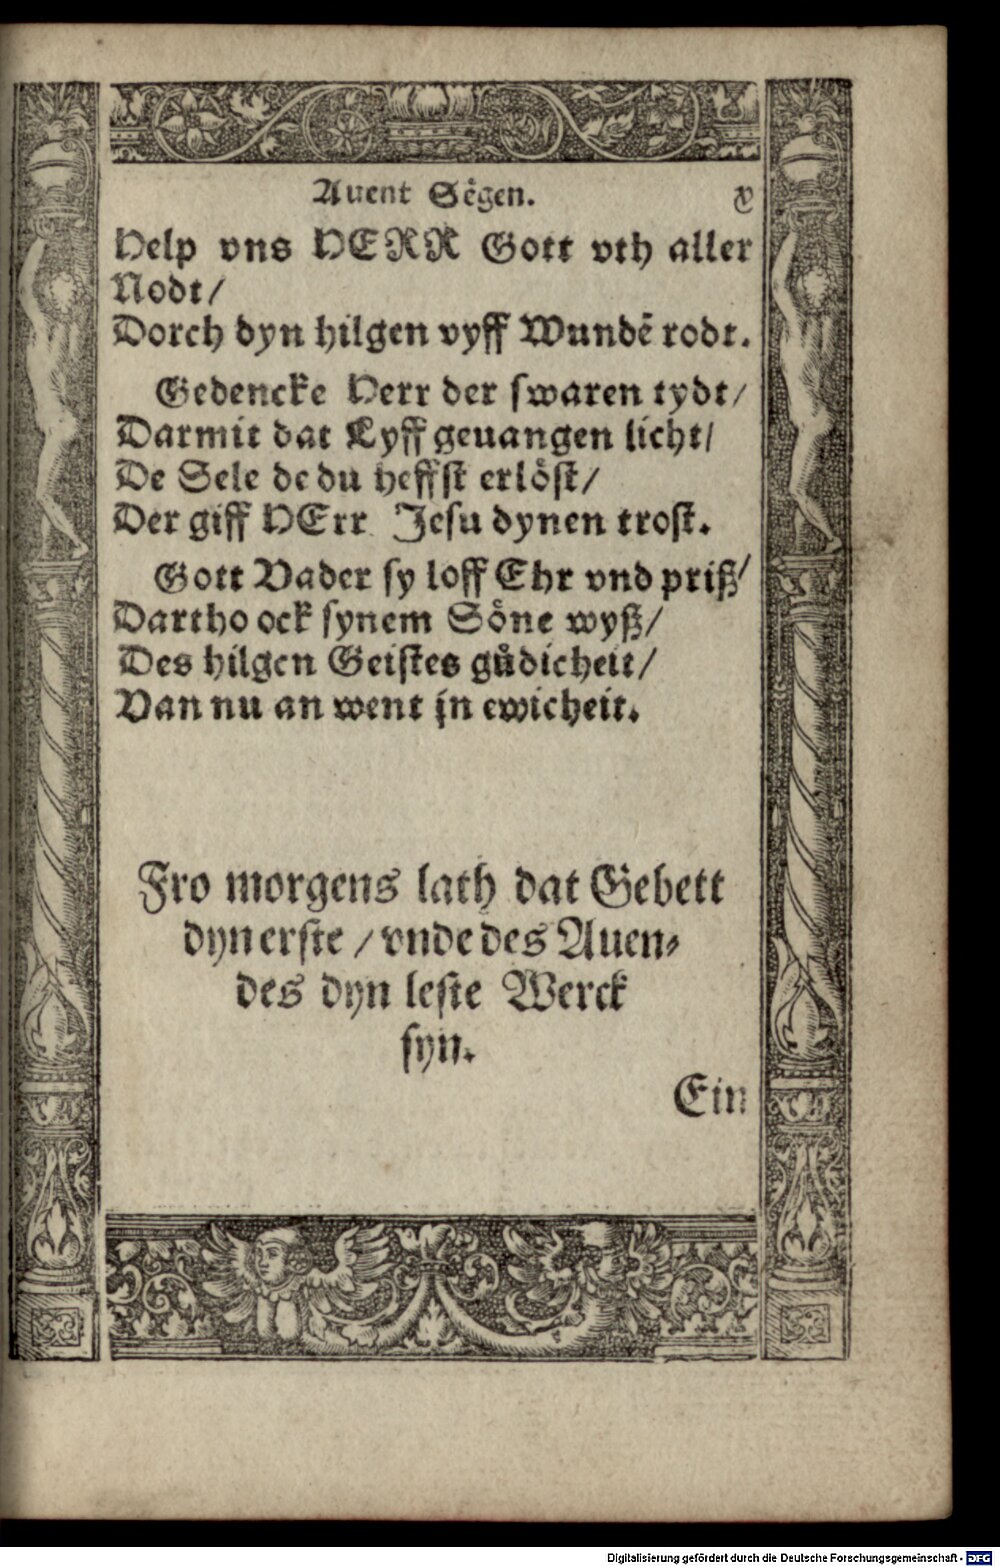 Auent Sẽgen. x
Help vns HERR Gott vth aller
Nodt/
Dorch dyn hilgen vyff Wundẽ rodt.
Gedencke Herr der swaren tydt/
Darmit dat Lyff geuangen licht/
De Sele de du heffst erlöst/
Der giff HErr Jesu dynen trost.
Gott Vader sy loff Ehr vnd priß/
Dartho ock synem Söne wyß/
Des hilgen Geistes gůdicheit/
Van nu an went in ewicheit.
Fro morgens lath dat Gebett
dyn erste / vnde des Auen⸗
des dyn leste Werck
syn.
Ein
Digitalisierung gefördert durch die Deutsche Forschungsgemeinschaft - DFG